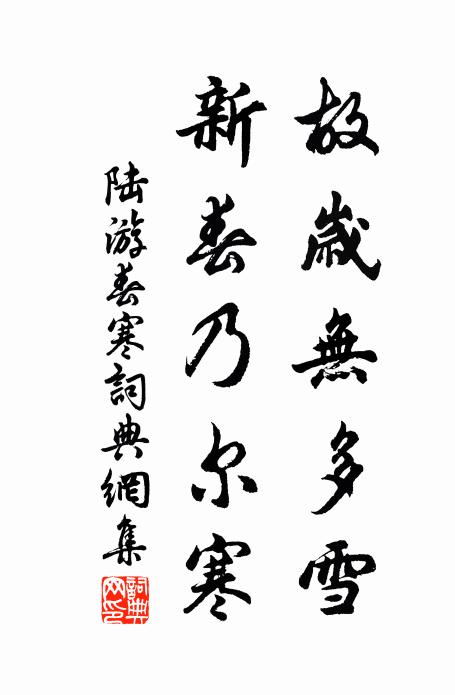 故歲無多雪
新春乃尔寒
陆游春寒詞典網集
詞典網印